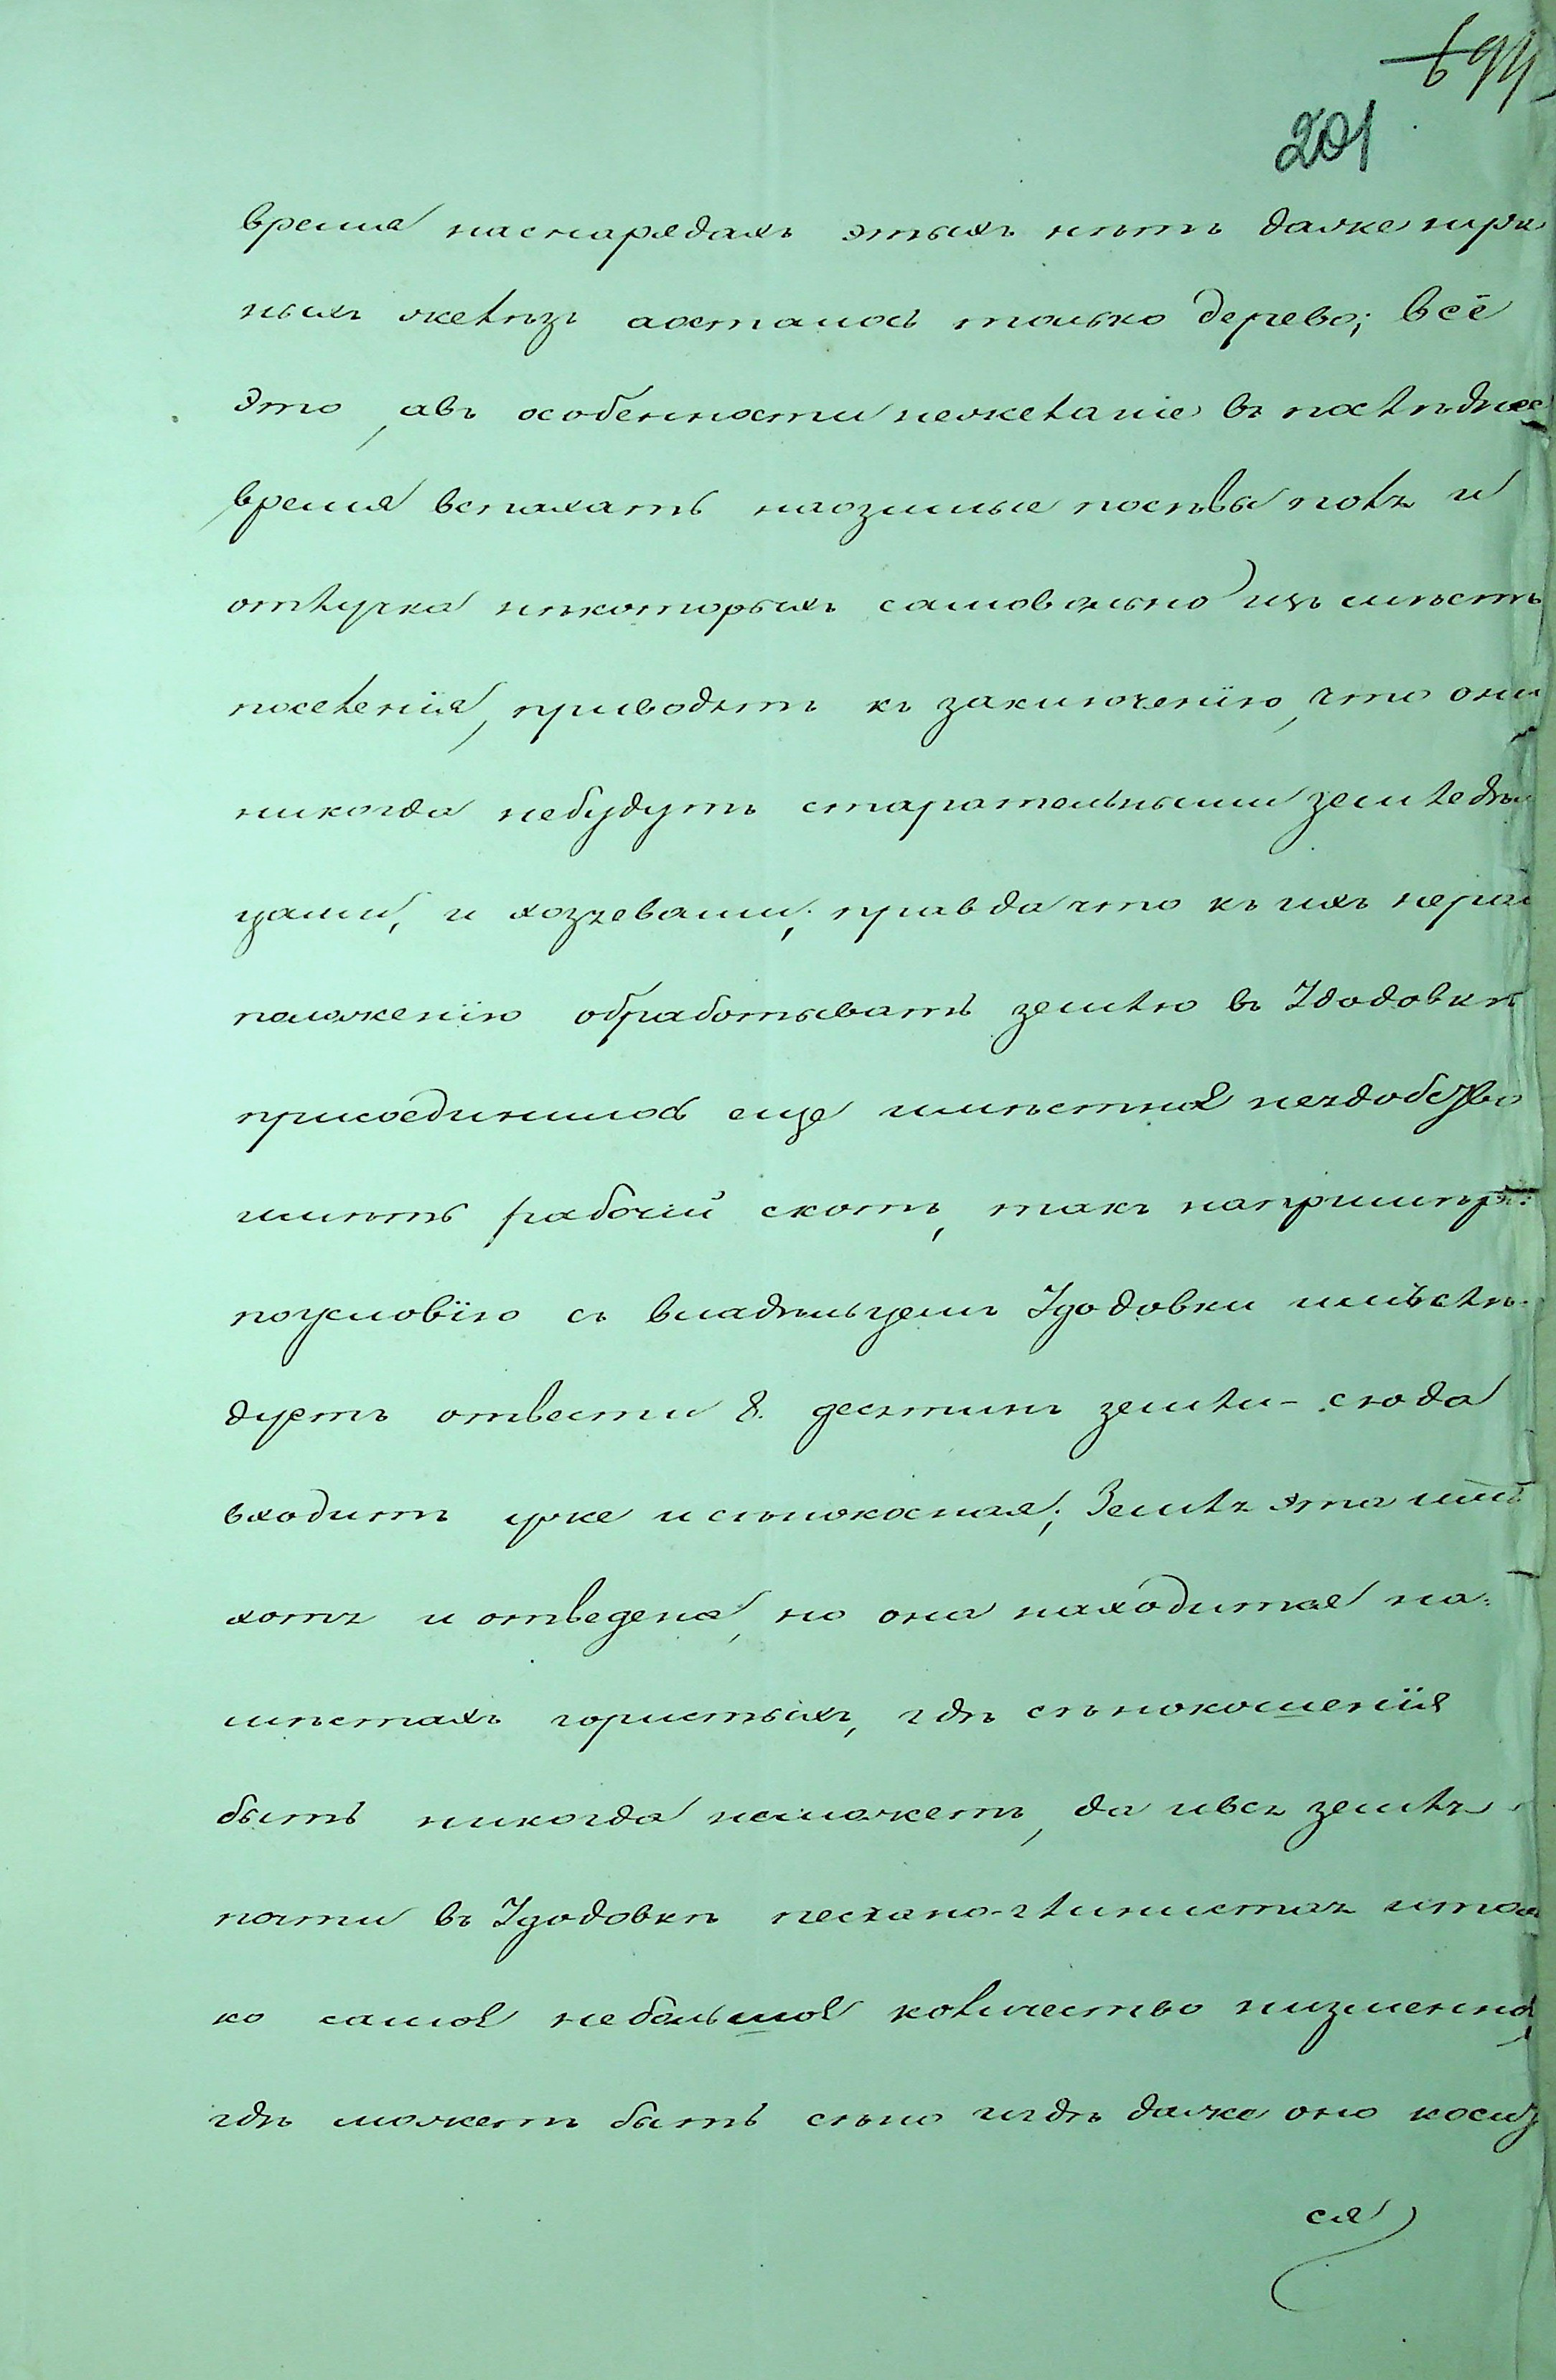 694
201
время наснарядахъ этыхъ нѣтъ даже нуж
ныхъ желѣзъ аосталось только дерево; всё
это, авъ особенности нежеланіе въ послѣднее
время вспахать наозимые посѣвы поля и
отлучка нѣкоторыхъ самовольно изъ мѣстъ
поселенія, приводятъ къ заключенію, что они
никогда небудутъ старательными земледѣль
цами, и хозяевами; правда что къ ихъ нерас
положенію обрабатывать землю въ Удодовкѣ
присоединилось еще имѣстноё неудобство
имѣть рабочій скотъ, такъ напримѣръ:
поусловію съ владѣльцемъ Удодовки имъслѣ-
дуетъ отвести 8. десятинъ земли - сюда
входитъ уже исѣнокосная; Земля эта имъ
хотя и отведена, но она находится на-
мѣстахъ гористыхъ, гдѣ сѣнокошенія
быть никогда неможетъ, да ився земля
почти въ Удодовкѣ песчано-глинистая итоль
ко самоё небольшоё количество низменной,
гдѣ можетъ быть сѣно игдѣ даже оно косит
ся